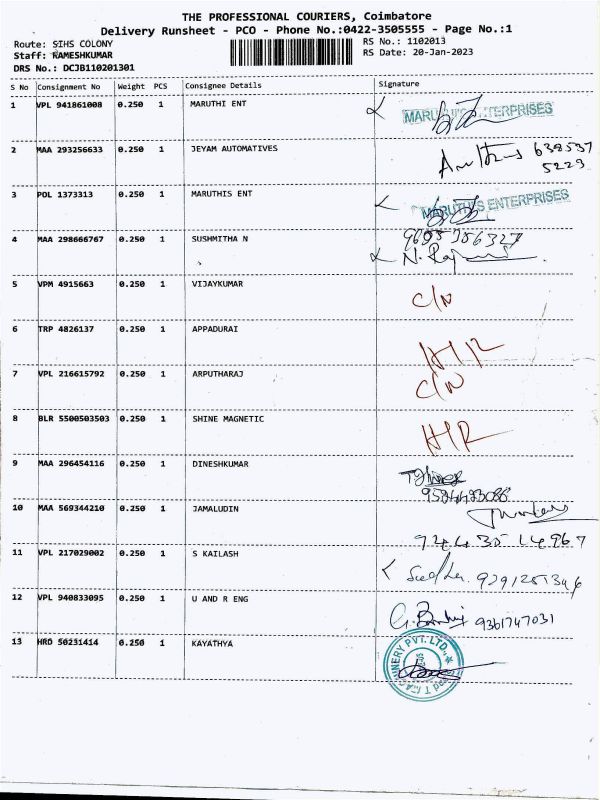 THE PROFESSIONAL COURIERS, Coimbatore
Delivery Runsheet - PCO - Phone No.:0422-3505555 - Page No.:1
Route: SIHS COLONY
RS No.: 1102013
Staff: RAMESHKUMAR
RS Date: 20-Jan-2023
DRS No.: DCJB110201301
S No Consignment No Weight PCS Consignee Details Signature
1 VPL 941861008 0.250 1 MARUTHI ENT ENTERPRISES
2 MAA 293256633 0.250 1 JEYAM AUTOMATIVES 638537
5223
3 POL 1373313 0.250 1 MARUTHIS ENT MARUTHIS ENTERPRISES
4 MAA 298666767 0.250 1 SUSHMITHA N
5 VPM 4915663 0.250 1 VIJAYKUMAR C/N
6 TRP 4826137 0.250 1 APPADURAI H/R
7 VPL 216615792 0.250 1 ARPUTHARAJ C/N
8 BLR 5500503503 0.250 1 SHINE MAGNETIC H/R
9 MAA 296454116 0.250 1 DINESHKUMAR
10 MAA 569344210 0.250 1 JAMALUDIN
11 VPL 217029002 0.250 1 S KAILASH
12 VPL 940833095 0.250 1 U AND R ENG 9361747031
13 HRO 50231414 0.250 1 KAYATHYA PVT. LTD.